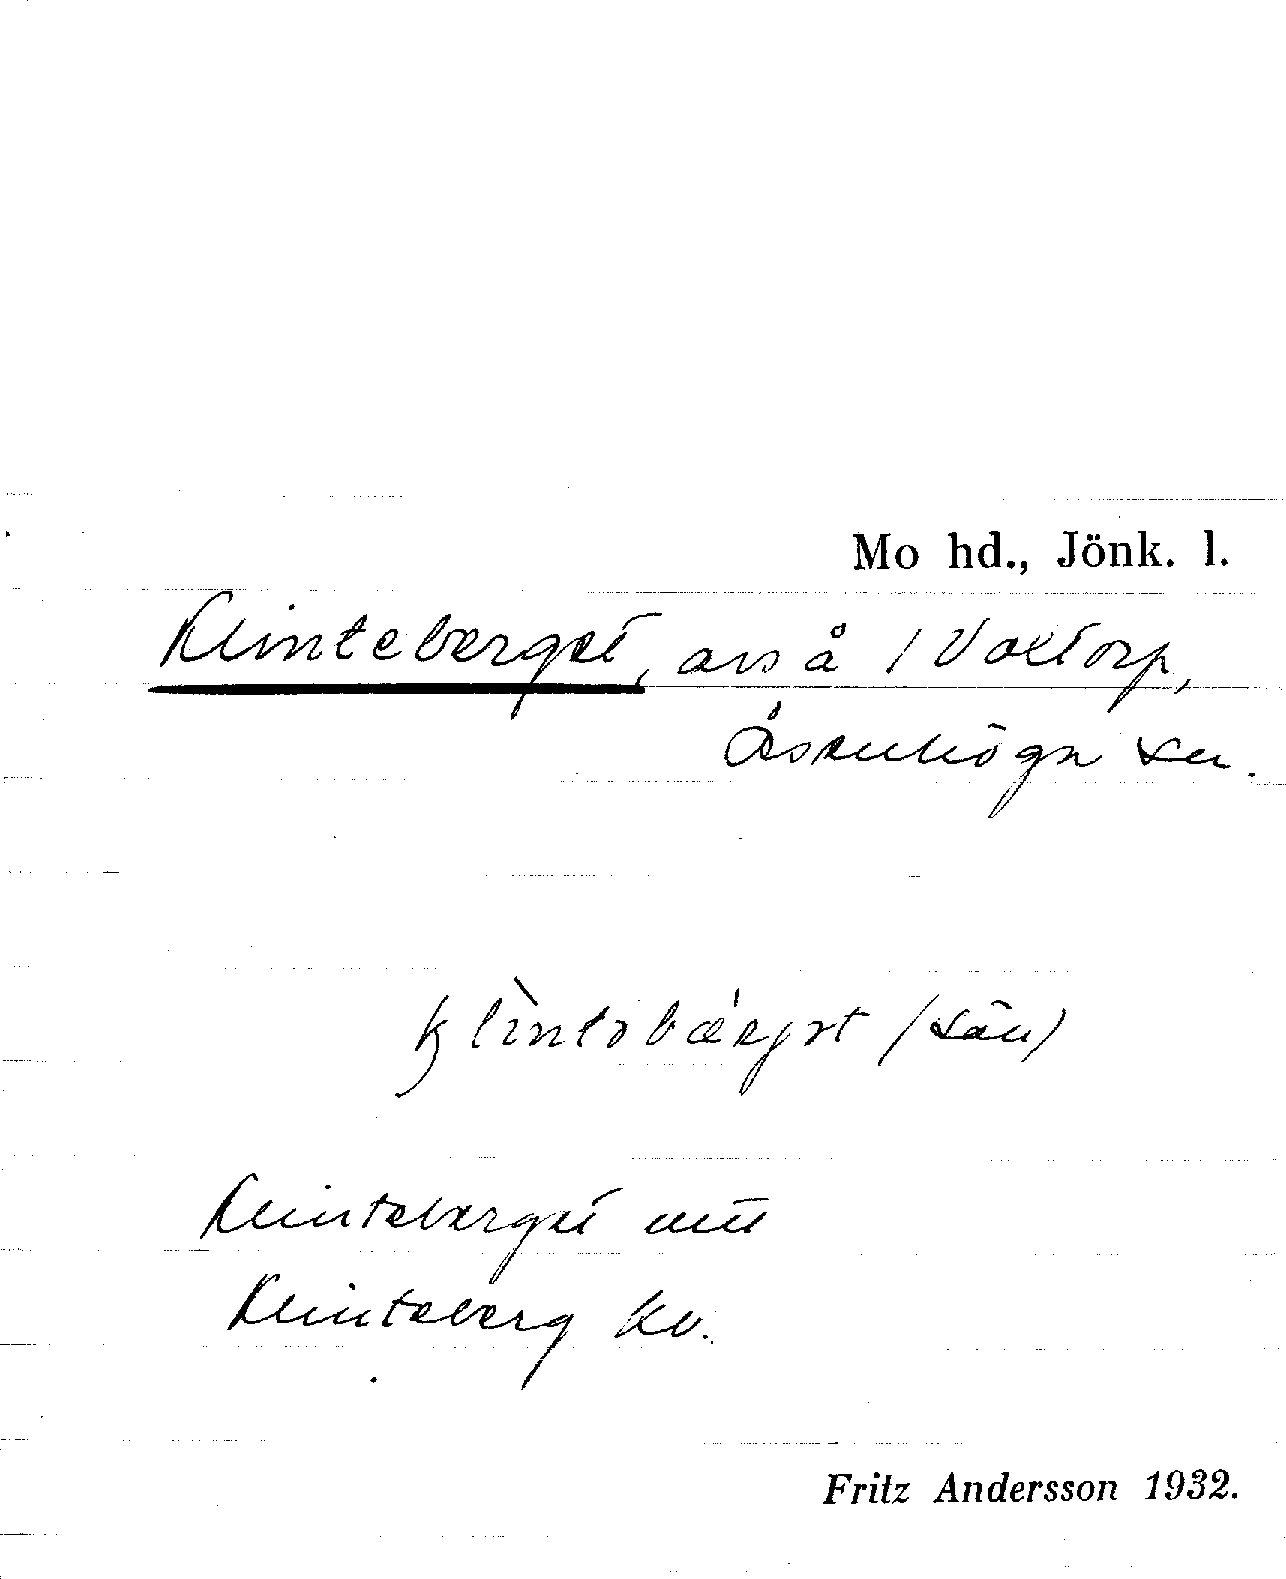 Mo hd., Jönk. l.
Klinteberget, avs å 1 Valtorp,
Åsenhöga sn.
klintəbærjət (sån)
Klinteberget
Klinteberg kv.
Fritz Andersson 1932.